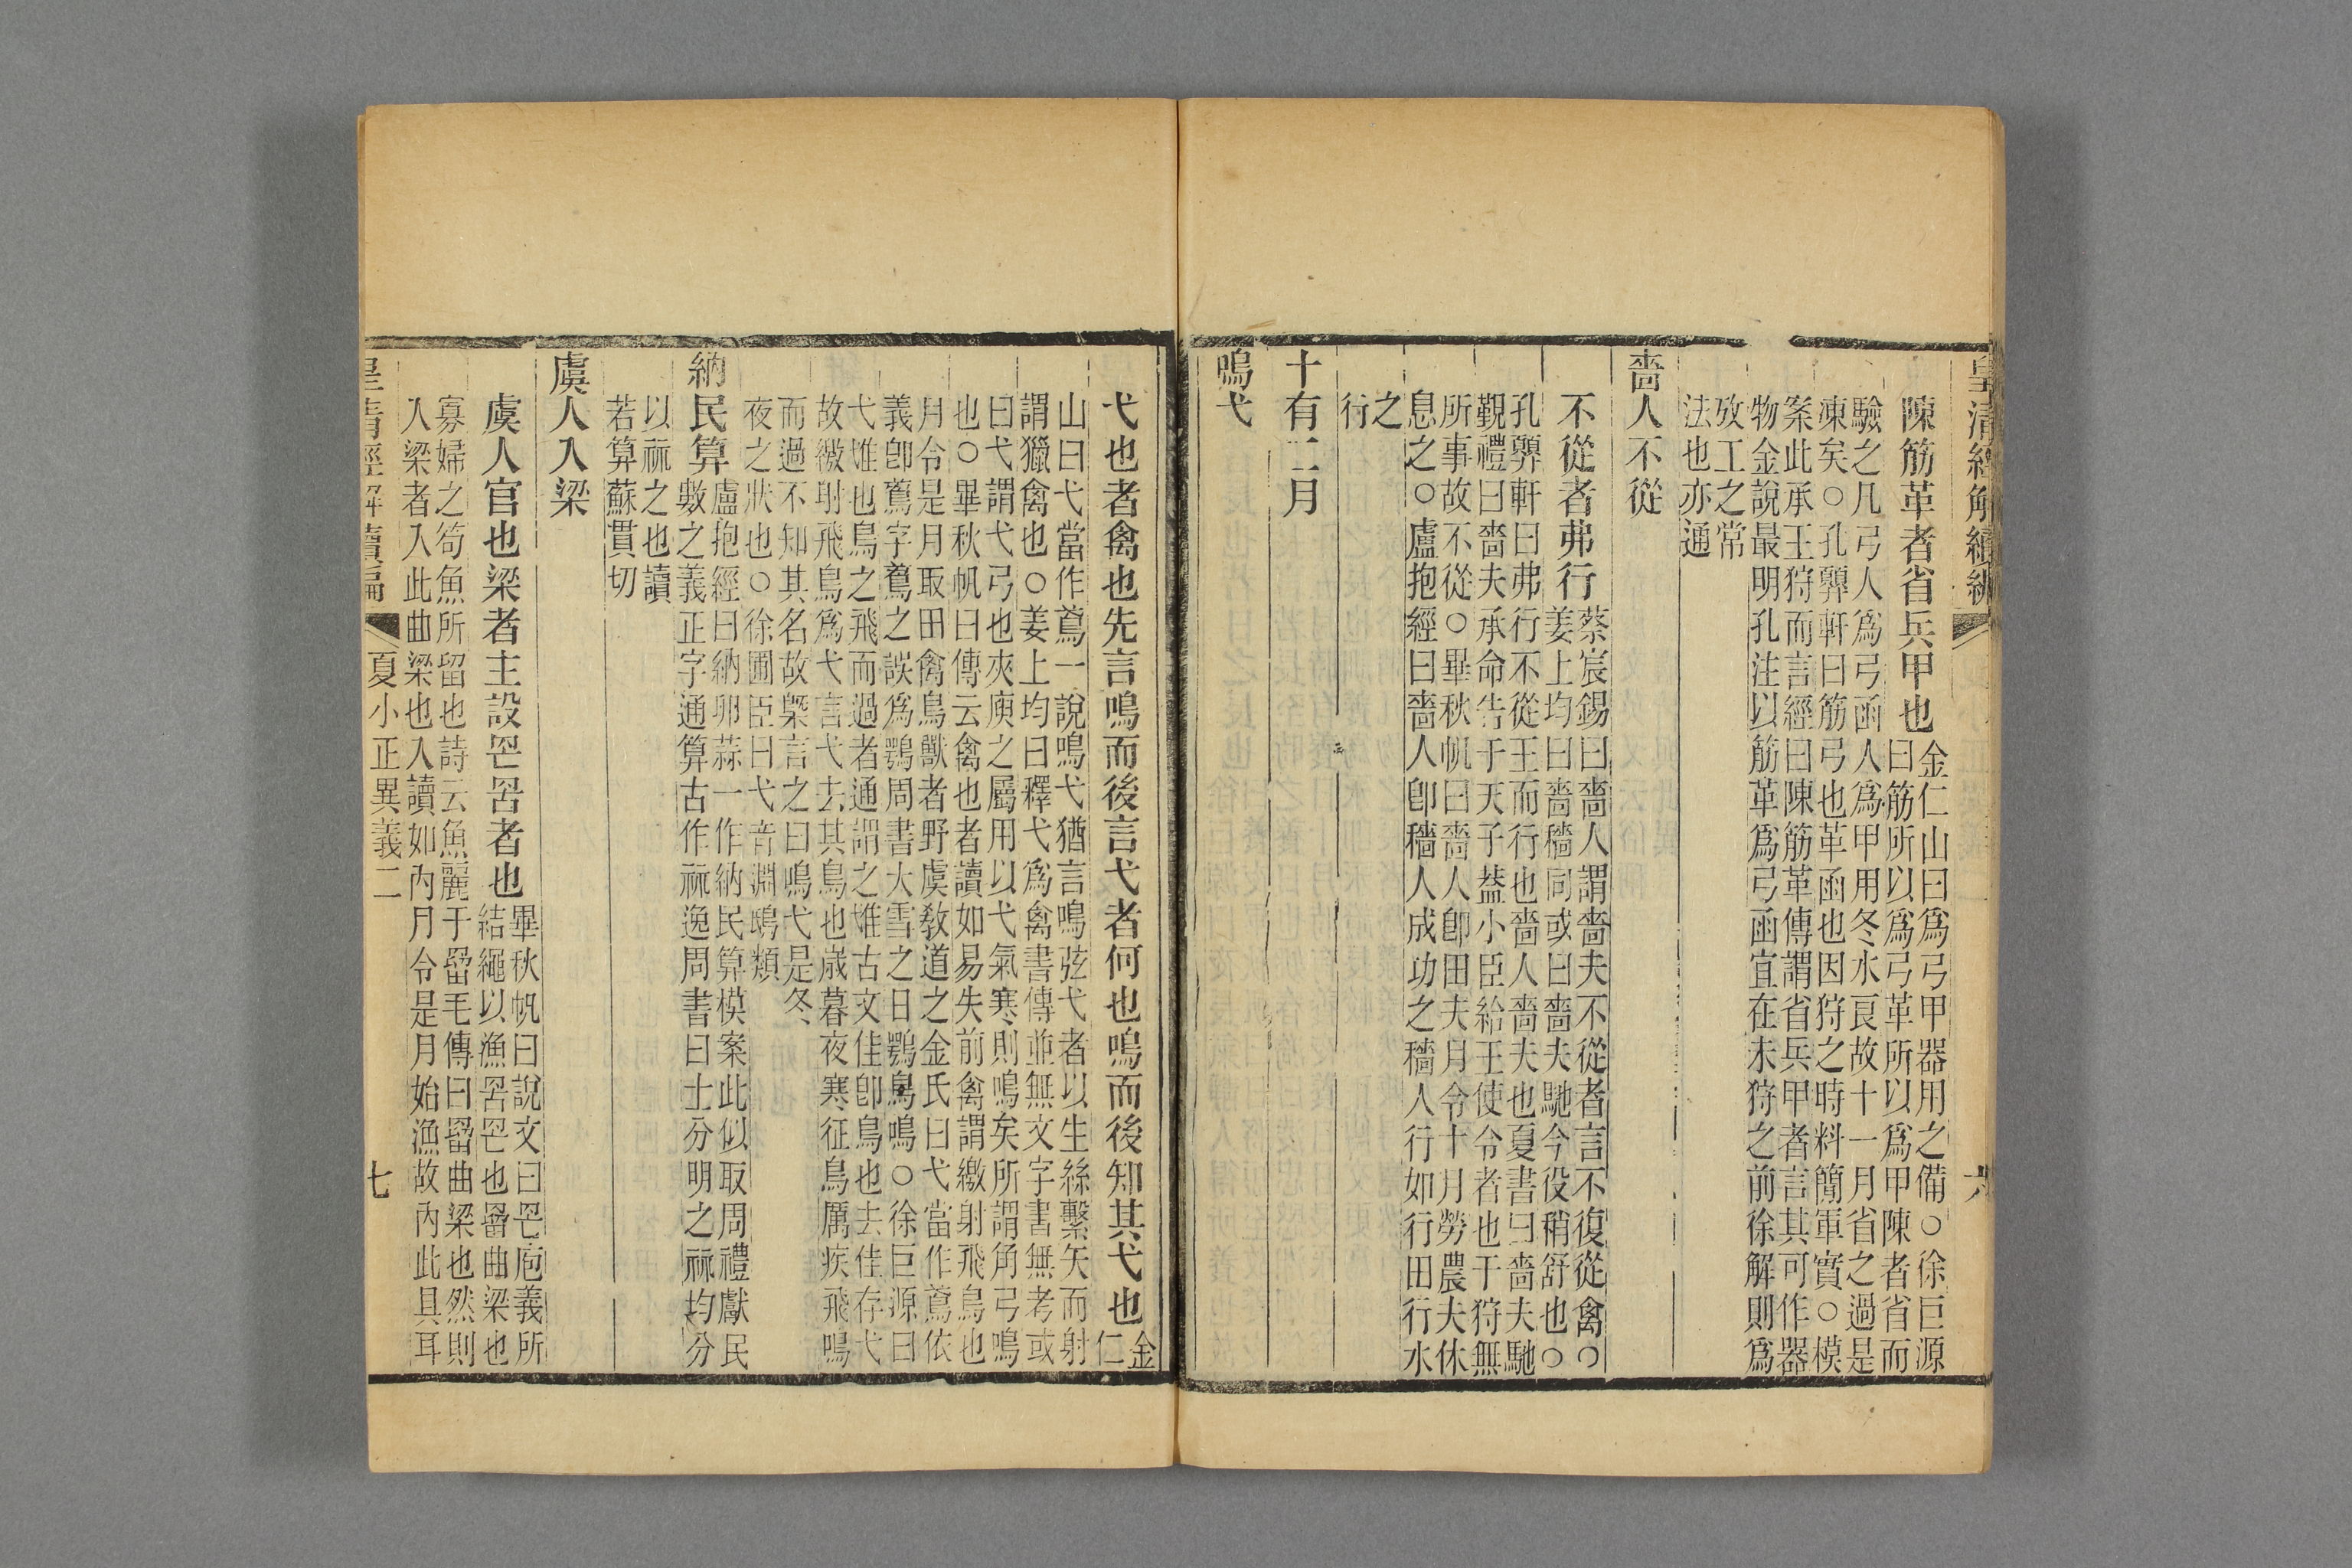 皇清經解續編
六
陳筋革者省兵甲也
金仁山曰爲弓甲器用之備○徐巨源
曰筋所以爲弓革所以爲甲陳者省而
驗之凡弓人爲弓函人爲甲用冬水良故十一月省之過是
凍矣○孔顨軒曰筋弓也革函也因狩之時料簡軍實○模
案此承王狩而言經曰陳筋革傳謂省兵甲者言其可作器
物金說最明孔注以筋革爲弓函宜在未狩之前徐解則爲
攷工之常
法也亦通
嗇人不從
不從者弗行
蔡宸錫曰嗇人謂嗇夫不從者言不復從禽○
姜上均曰嗇穡同或曰嗇夫馳今役稍舒也○
孔顨軒曰弗行不從王而行也嗇人嗇夫也夏書曰嗇夫馳
覲禮曰嗇夫承命告于天子葢小臣給王使令者也于狩無
所事故不從○畢秋帆曰嗇人卽田夫月令十月勞農夫休
息之○盧抱經曰嗇人卽穡人成功之穡人行如行田行水
之
行
十有二月
鳴弋
弋也者禽也先言鳴而後言弋者何也鳴而後知其弋也
金
仁
山曰弋當作鳶一說鳴弋猶言鳴弦弋者以生絲繫矢而射
謂獵禽也○姜上均曰釋弋爲禽書傳並無文字書無考或
曰弋謂弋弓也夾庾之屬用以弋氣寒則鳴矣所謂角弓鳴
也○畢秋帆曰傳云禽也者讀如易失前禽謂繳射飛鳥也
月令是月取田禽鳥獸者野虞敎道之金氏曰弋當作鳶依
義卽鳶字鳶之誤爲鶚周書大雪之日鶚鳥鳴○徐巨源曰
弋惟也鳥之飛而過者通謂之惟古文隹卽鳥也去隹存弋
故徼射飛鳥爲弋言弋去其鳥也歲暮夜寒征鳥厲疾飛鳴
而過不知其名故槩言之曰鳴弋是冬
夜之狀也○徐圃臣曰弋音淵鴟類
納民算
盧抱經曰納卵蒜一作納民算模案此似取周禮獻民
數之義正字通算古作祘逸周書曰士分明之祘均分
以祘之也讀
若算蘇貫切
虞人入梁
虞人官也梁者主設罔罟者也
畢秋帆曰說文曰罔庖義所
結繩以漁罟罔也罶曲梁也
寡婦之笱魚所留也詩云魚麗于罶毛傳曰罶曲梁也然則
入梁者入此曲梁也入讀如內月令是月始漁故內此具耳
皇清經解續編
夏小正異義二
七